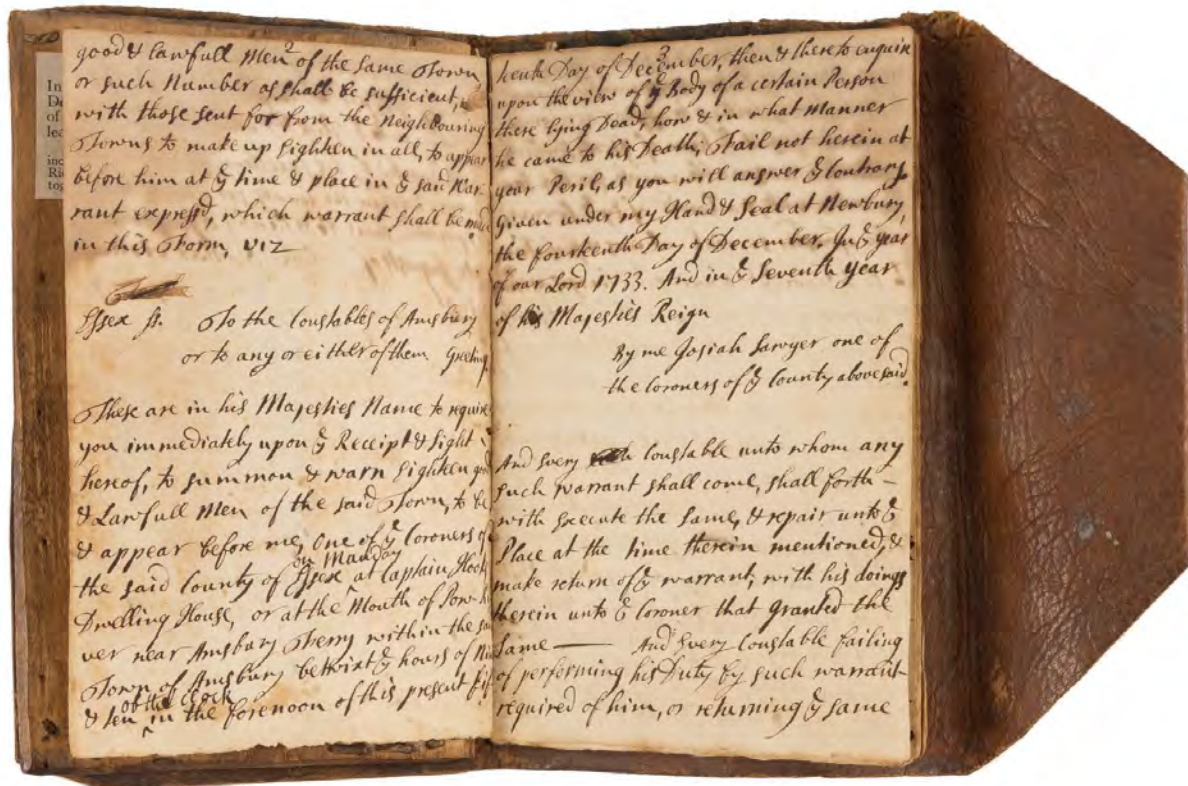 In
De
of
lea
inc
Ric
tog
2
good & lawfull Men of the same Town
or such Number as shall be sufficient,
with those sent for from the Neighbouring
Towns to make up Eighteen in all, to appear
before him at ye time & place in ye said War-
rant expressd, which warrant shall be made
in this Form, viz
Essex ss. To the Constables of Amsbury
or to any or either of them. Greeting.
These are in his Majesties Name to require
you immediately upon ye Receipt & Sight
hereof, to summon & warn Eighteen good
& Lawfull Men of the said Town, to be
& appear before me, One of ye Coroners of
the said County of Essex ^ on Munday at Captain
Dwelling House, or at the Mouth of Pow-Ri
ver near Amsbury Ferry within the said
Town of Amsbury betwixt ye hours of Nine
& ten ^ of the Clock in the forenoon of this present fif
3
teenth Day of December, then & there to enquire
upon the view of ye Body of a certain Person
there lying Dead, how & in what Manner
he came to his Death; Fail not herein at
your Peril, as you will answer ye Contrary.
Given under my Hand & Seal at Newbury,
the fourteenth Day of December, In ye year
of our Lord 1733. And in ye Seventh year
of his Majesties Reign
By me Josiah Sawyer one of
the Coroners of ye County abovesaid.
And Every Constable unto whom any
such warrant shall come, shall forth-
with Execute the Same, & repair unto ye
Place at the time therein mentioned, &
make return of ye warrant, with his doings
therein unto ye Coroner that granted the
Same — And Every Constable failing
of performing his Duty by such warrant
required of him, or returning ye same